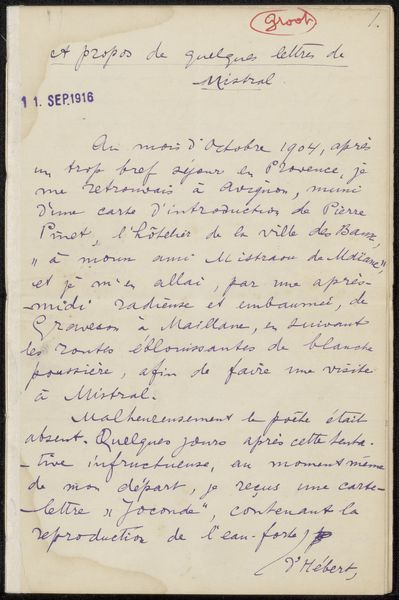 Groot
1.
A propos de quelques lettres de
Mistral
11. SEP. 1916
Au mois d'Octobre 1904, après
un trop bref séjour en Provence, je
me retrouvais à Avignon, muni
d'une carte d'introduction de Pierre
Pinet, l'hôtelier de la ville des Baux,
"à moun ami Mistraou de Maiane",
et je m'en allai, par une après-
-midi radieuse et embaumée, de
Graveson à Maillane, en suivant
les routes éblouissantes de blanche
poussière, afin de faire une visite
à Mistral.
Malheureusement le poète était
absent. Quelques jours après cette tenta-
-tive infructueuse, au moment même
de mon départ, je reçus une carte-
lettre "Joconde", contenant la
reproduction de l'eau-forte
d'Hébert,